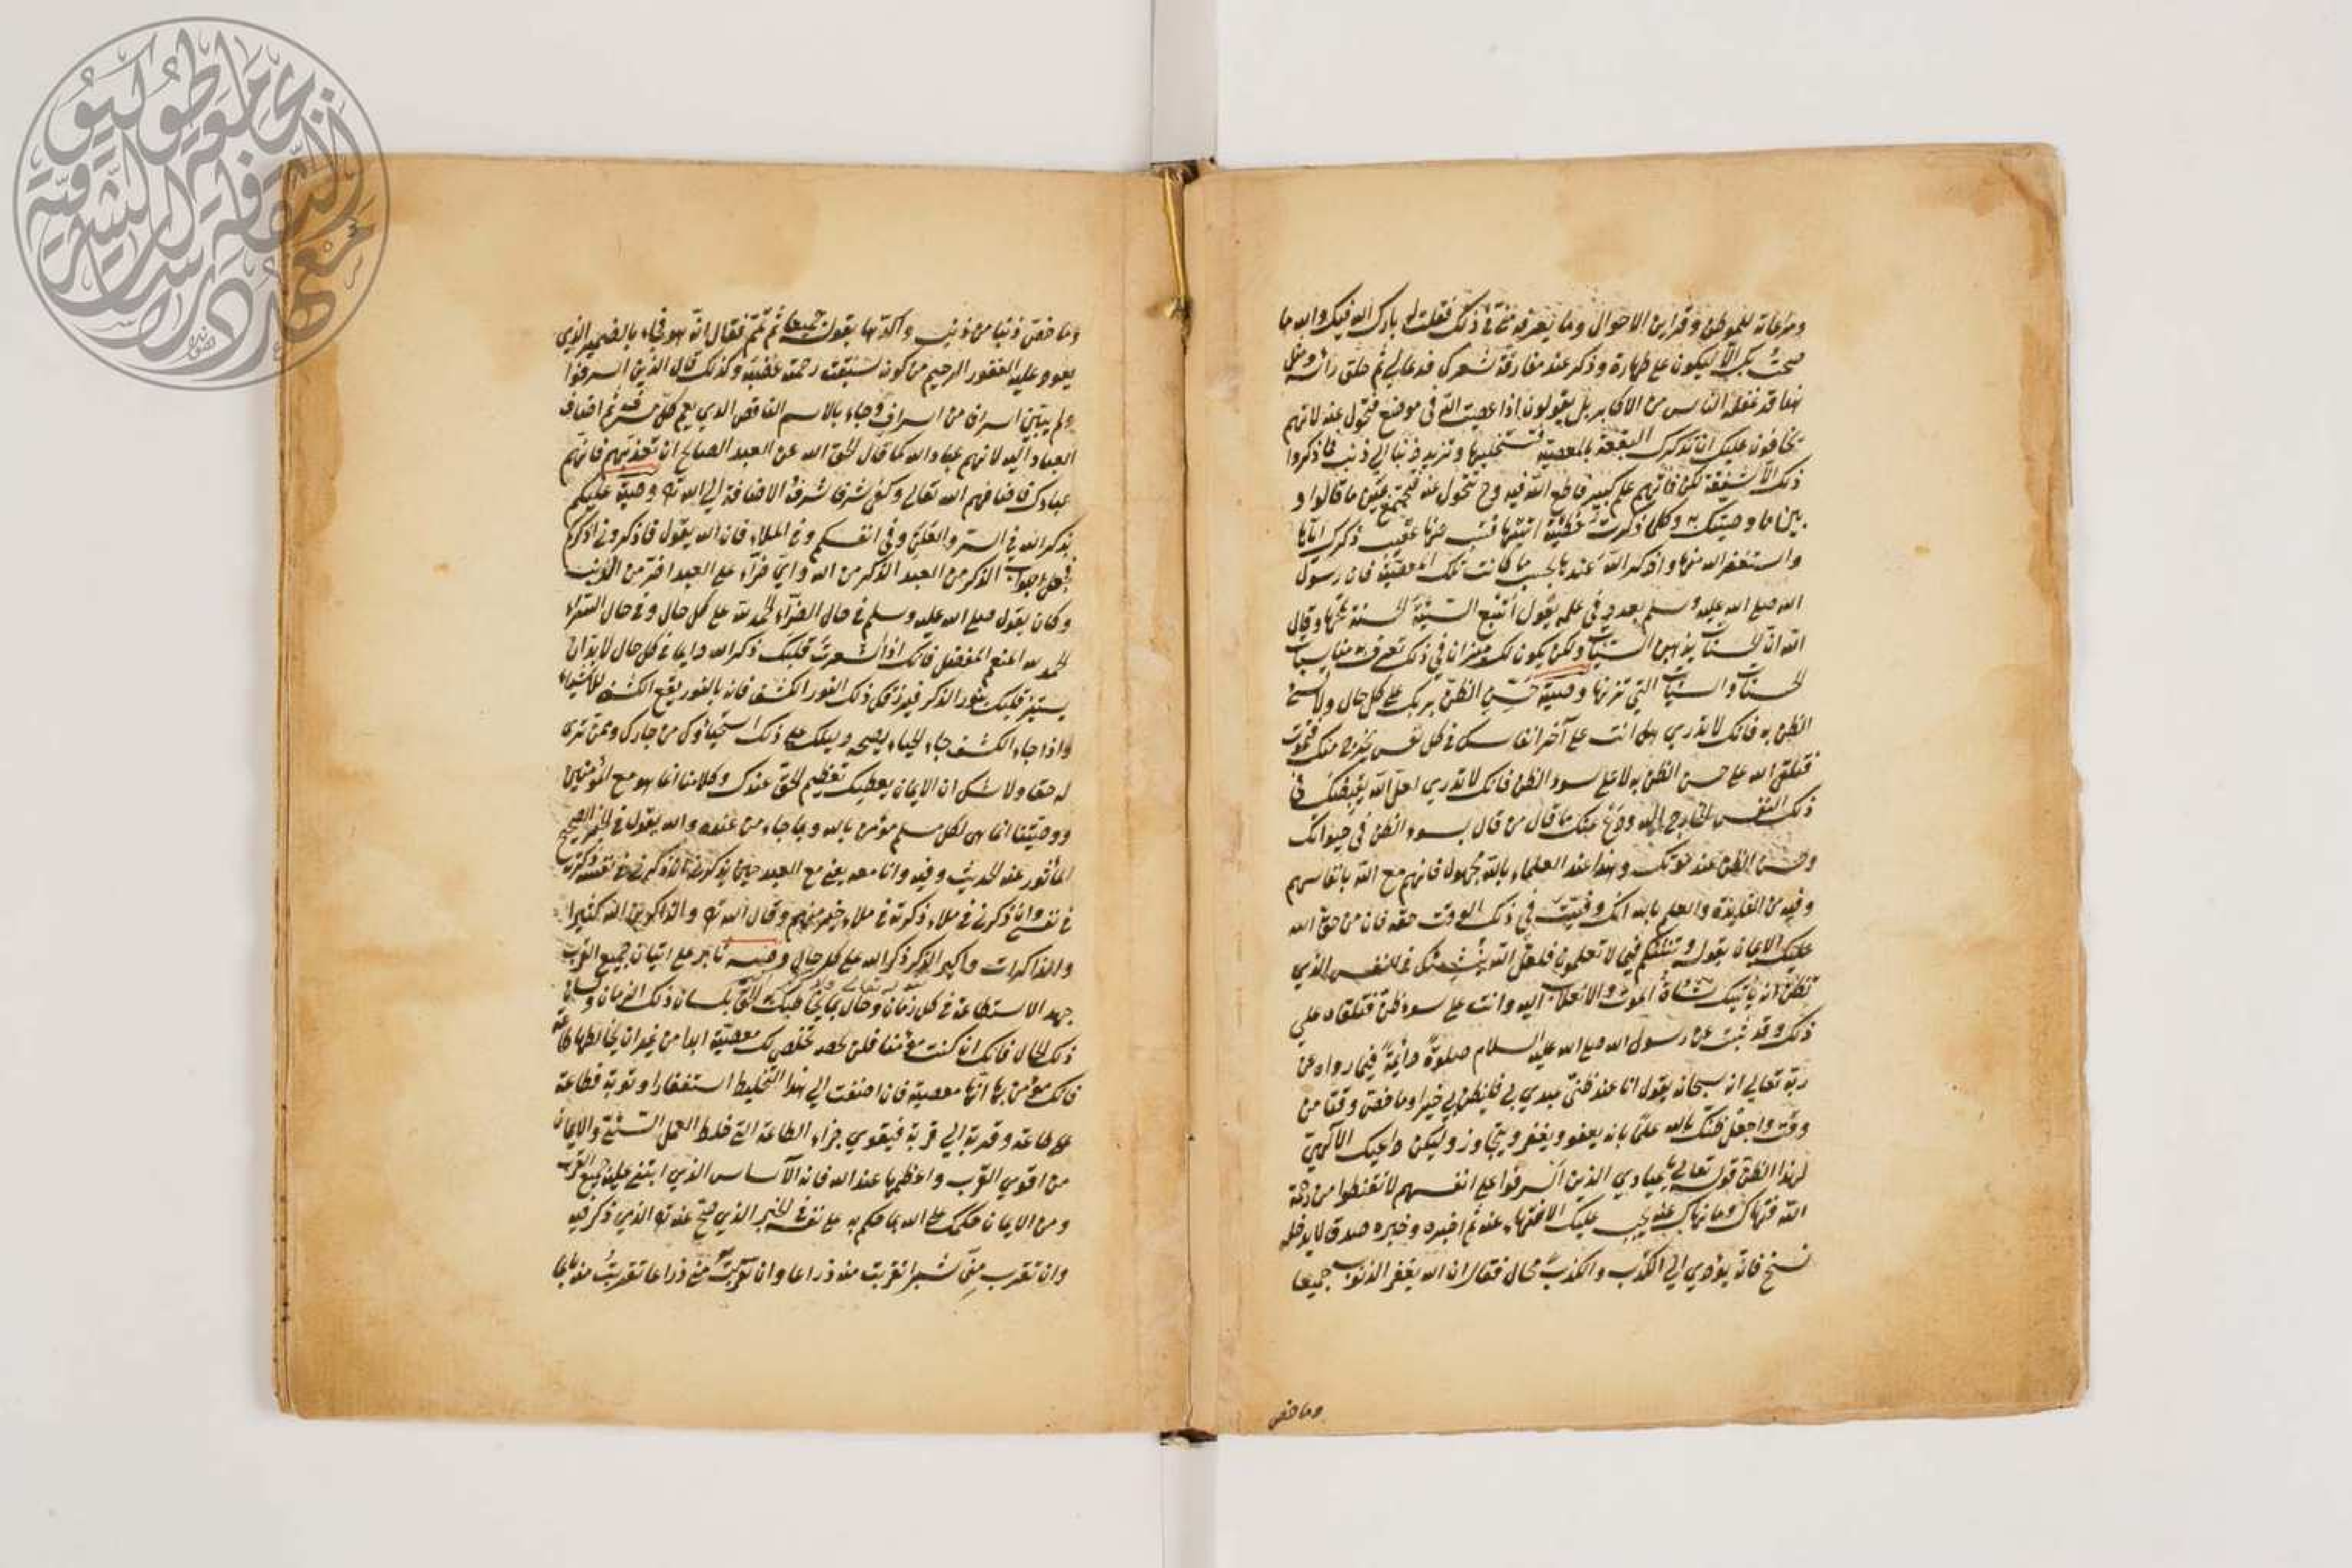 ومراعاته للموطن وقراين الاحوال وما يعرفه مني في ذلك فقلت له بارك الله فيك والله ما
صحت بك الا ليكون على طهارة وذكر عند مفارقة شعرك فدعا لي ثم حلق راسه ومثل
هذا قد غفله الناس من الاكابر بل يقولون اذا عصيت الله في موضع فتحول عنه لانهم
يخافون عليك ان تذكرك البقعة بالمعصية فتستحليها وتزيد ذنبا الى ذنب فما ذكروا
ذلك الا شفقة لكن فاتهم علم كبير فاطع الله فيه وح تتحول عنه فتجمع بين ما قالوا و
بين ما وصيتك به وكلما ذكرت خطيئة اتيتها فتب عنها عقيب ذكرك اياها
واستغفر الله منها واذكر الله عندها بحسب ما كانت تلك المعصية فان رسول
الله صلى الله عليه وسلم يقول اتبع السيئة الحسنة تمحها وقال
الله ان الحسنات يذهبن السيئات ولكن يكون لك ميزان في ذلك تعرف به مناسبات
الحسنات والسيئات التي تزنها وصية حسن الظن بربك على كل حال ولا تسئ
الظن به فانك لا تدري هل انت على آخر انفاسك في كل نفس يخرج منك فتموت
فتلقى الله على حسن الظن به لا على سوء الظن فانك لا تدري لعل الله يقبضك في
ذلك النفس الخارج اليه ودع عنك ما قال من قال بسوء الظن في حيواتك
وحسن الظن عند موتك وهذا عند العلماء بالله مجهول فانهم مع الله بانفاسهم
وفيه من الفايدة والعلم بالله انك وفيت في ذلك الوقت حقه فان من حق الله
عليك الايمان بقوله وننشئكم فيما لا تعلمون فلعل الله ينشئك في النفس الذي
تظن انه ياتيك نشاة الموت والانقلاب اليه وانت على سوء ظن فتلقاه على
ذلك وقد ثبت عن رسول الله صلى الله عليه السلام صلوة دائمة فيما رواه عن
ربه تعالى انه سبحانه يقول انا عند ظن عبدي بي فليظن بي خيرا وما خص وقتا من
وقت واجعل ظنك بالله علما بانه يعفو ويغفر ويتجاوز وليكن داعيك الالهي
لهذا الظن قوله تعالى يا عبادي الذين اسرفوا على انفسهم لا تقنطوا من رحمة
الله فنهاك وما نهاك عنه يجب عليك الانتهاء عنه ثم اخبره وخبره صدق لا يدخله
نسخ فانه يؤدي الى الكذب والكذب محال فقال ان الله يغفر الذنوب جميعا
وما خص
وما خص ذنبا من ذنب واكدها بقوله جميعا ثم تمم فقال انه هو فجاء بالضمير الذي
يعود عليه الغفور الرحيم من كونه سبقت رحمته غضبه وكذلك قال الذين اسرفوا
ولم يبين اسرافا من اسراف وجاء بالاسم الناقص الذي يعم كل مسرف ثم اضاف
العباد اليه لانهم عباد الله كما قال الحق الله عن العبد الصالح ان تعذبهم فانهم
عبادك فاضافهم الله تعالى وكفى شرفا شرف الاضافة الى الله تع وصية عليكم
بذكر الله في السر والعلن وفي انفسكم وفي الملاء فان الله يقول فاذكروني اذكركم
فجعل جواب الذكر من العبد الذكر من الله واي ضراء على العبد اضر من الذنب
وكان يقول صلى الله عليه وسلم في حال الضراء الحمد لله على كل حال وفي حال السراء
الحمد لله المنعم المفضل فانك اذا اشعرت قلبك ذكر الله دايما في كل حال لا بد ان
يستنير قلبك بنور الذكر فيرزقك ذلك النور الكشف فانه بالنور يقع الكشف للاشياء
واذا جاء الكشف جاء الحياء يصحبه دليلك على ذلك استحياؤك من جارك وممن ترى
له حقا ولا شك ان الايمان يعطيك تعظيم الحق عندك وكلامنا انما هو مع المؤمنين
ووصيتنا انما هي لكل مسلم مؤمن بالله وبما جاء من عنده والله يقول في الخبر الصحيح
الماثور عنه الحديث وفيه وانا معه يعني مع العبد حين يذكرني ان ذكرني في نفسه ذكرته
في نفسي وان ذكرني في ملاء ذكرته في ملاء خير منهم وقال الله تع والذاكرين الله كثيرا
والذاكرات واكبر الذكر ذكر الله على كل حال وصية ثابر على اتيان جميع القرب
جهد الاستطاعة في كل زمان وحال بما يخاطبك به الحق بلسان ذلك الزمان ولسان
ذلك الحال فانك ان كنت مؤمنا فلن تخلص لك معصية ابدا من غير ان يخالطها طاعة
فانك مؤمن بها انها معصية فان اضفت الى هذا التخليط استغفارا وتوبة فطاعة
على طاعة وقربة الى قربة فيقوي جزاء الطاعة التي خلط العمل السيئ والايمان
من اقوى القرب واعظمها عند الله فانه الاساس الذي ابتنى عليه جميع القرب
ومن الايمان حكمك على الله بما حكم به على نفسه في الخبر الذي صح عنه تع الذي ذكر فيه
وان تقرب مني شبرا تقربت منه ذراعا وان تقرب مني ذراعا تقربت منه باعا